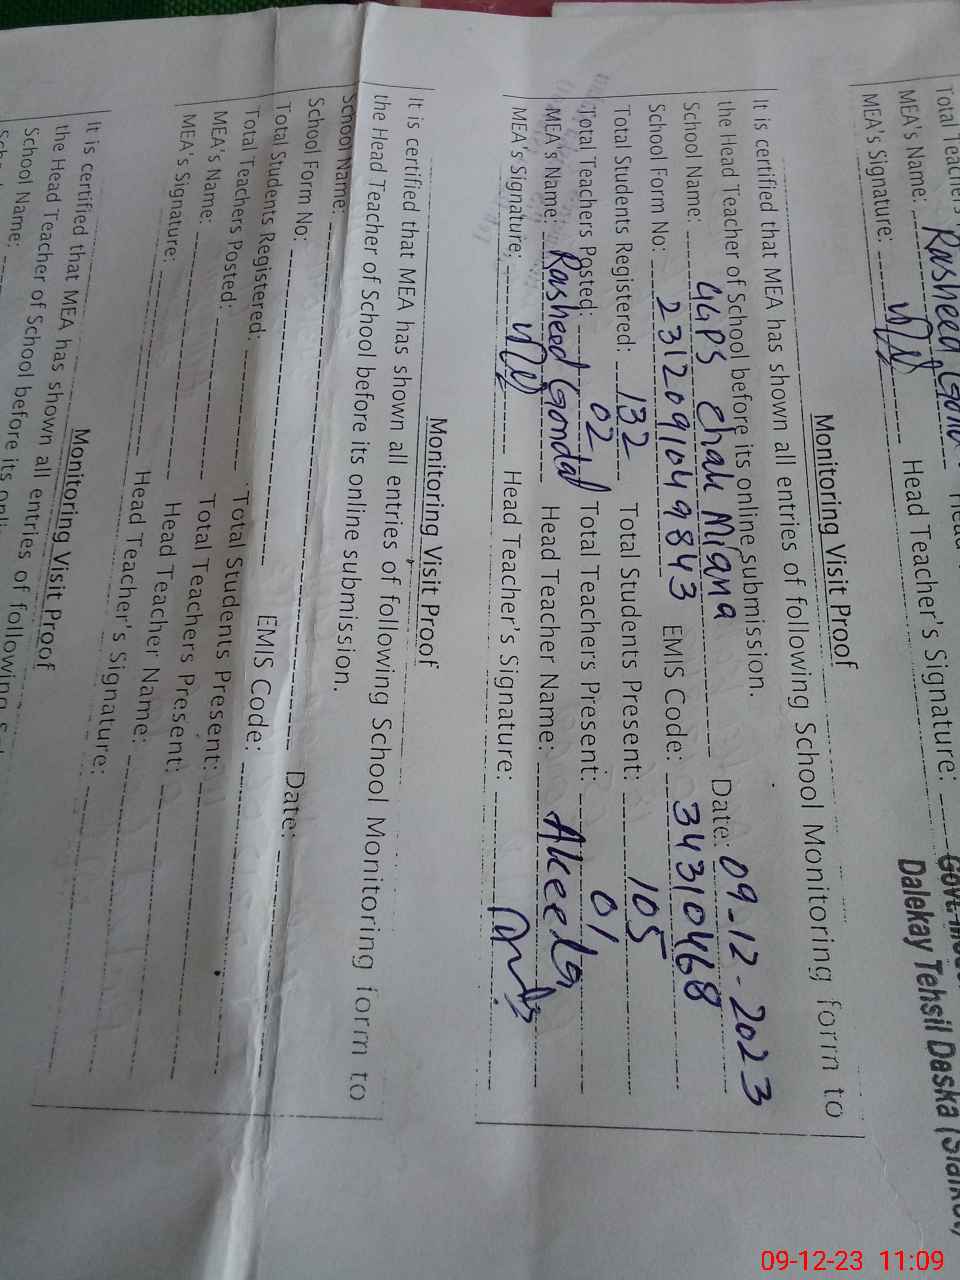 Total Teachers
MEA's Name: Rasheed Head
MEA's Signature: Head Teacher's Signature:
Dalekay Tehsil Daska
Monitoring Visit Proof
It is certified that MEA has shown all entries of following School Monitoring form to
the Head Teacher of School before its online submission.
School Name: GGPS Chak Miana Date: 09-12-2023
School Form No: 2312091049843 EMIS Code: 34310468
Total Students Registered: 132 Total Students Present: 105
Total Teachers Posted: 02 Total Teachers Present: 01
MEA's Name: Rasheed Gondal Head Teacher Name: Akeela
MEA's Signature: Head Teacher's Signature:
Monitoring Visit Proof
It is certified that MEA has shown all entries of following School Monitoring form to
the Head Teacher of School before its online submission.
School Name: Date:
School Form No: EMIS Code:
Total Students Registered: Total Students Present:
Total Teachers Posted: Total Teachers Present:
MEA's Name: Head Teacher Name:
MEA's Signature: Head Teacher's Signature:
Monitoring Visit Proof
It is certified that MEA has shown all entries of following
the Head Teacher of School before its
School Name:
09-12-23 11:09